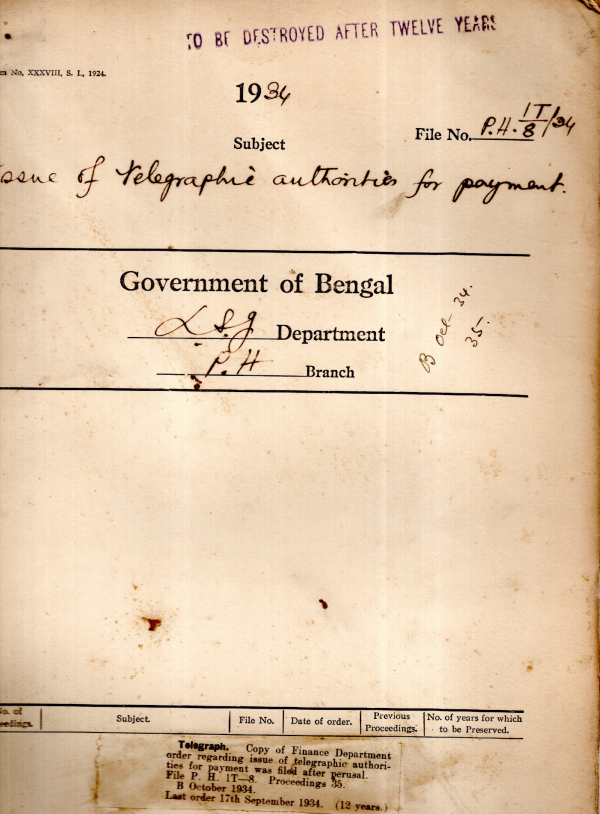 TO BE DESTROYED AFTER TWELVE YEARS
No. XXXVIII, S. I., 1924.
1934
Subject
File No. P.H. 1T/8/34
ssue of Telegraphic authorities for payment.
Government of Bengal
L.S.G Department
P.H Branch
B Oct- 34.
35.
No. of
eedings.
Subject.
File No.
Date of order.
Previous
Proceedings.
No. of years for which
to be Preserved.
Telegraph. Copy of Finance Department
order regarding issue of telegraphic authori-
ties for payment was filed after perusal.
File P. H. 1T—8. Proceedings 35.
B October 1934.
Last order 17th September 1934. (12 years.)